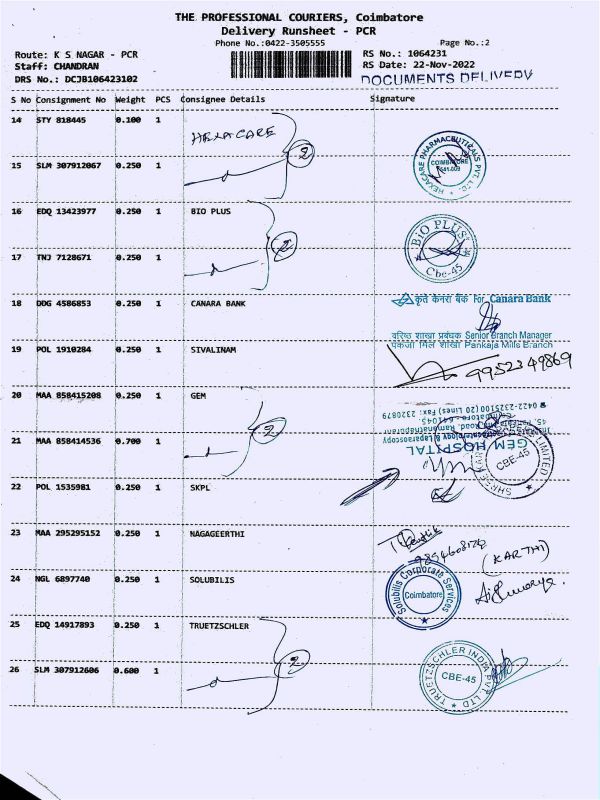 THE PROFESSIONAL COURIERS, Coimbatore
Delivery Runsheet - PCR
Phone No.:0422-3505555
Page No.:2
Route: K S NAGAR - PCR
RS No.: 1064231
Staff: CHANDRAN
RS Date: 22-Nov-2022
DRS No.: DCJB106423102
DOCUMENTS DELIVERY
S No Consignment No Weight PCS Consignee Details Signature
14 STY 818445 0.100 1 HEXACARE
HEXACARE PHARMACEUTICALS PVT. LTD.
COIMBATORE
15 SLM 307912067 0.250 1
2
16 EDQ 13423977 0.250 1 BIO PLUS
BIO PLUS
Cbe-45
17 TNJ 7128671 0.250 1
2
18 DDG 4586853 0.250 1 CANARA BANK
कृते केनरा बैंक For Canara Bank
वरिष्ठ शाखा प्रबंधक Senior Branch Manager
पंकजा मिल शाखा Pankaja Mills Branch
19 POL 1910284 0.250 1 SIVALINAM
9952349869
20 MAA 858415208 0.250 1 GEM
GEM HOSPITAL
45,
Ramanathapuram
Coimbatore - 641045
0422-2325100 (20 Lines) Fax: 2320879
21 MAA 858414536 0.700 1
2
CBE-45
LIMITED
22 POL 1535981 0.250 1 SKPL
23 MAA 295295152 0.250 1 NAGAGEERTHI
(KARTHI)
24 NGL 6897740 0.250 1 SOLUBILIS
Solubilis Corporate Services
Coimbatore
25 EDQ 14917893 0.250 1 TRUETZSCHLER
TRUETZSCHLER INDIA PVT. LTD
CBE-45
26 SLM 307912606 0.600 1
2